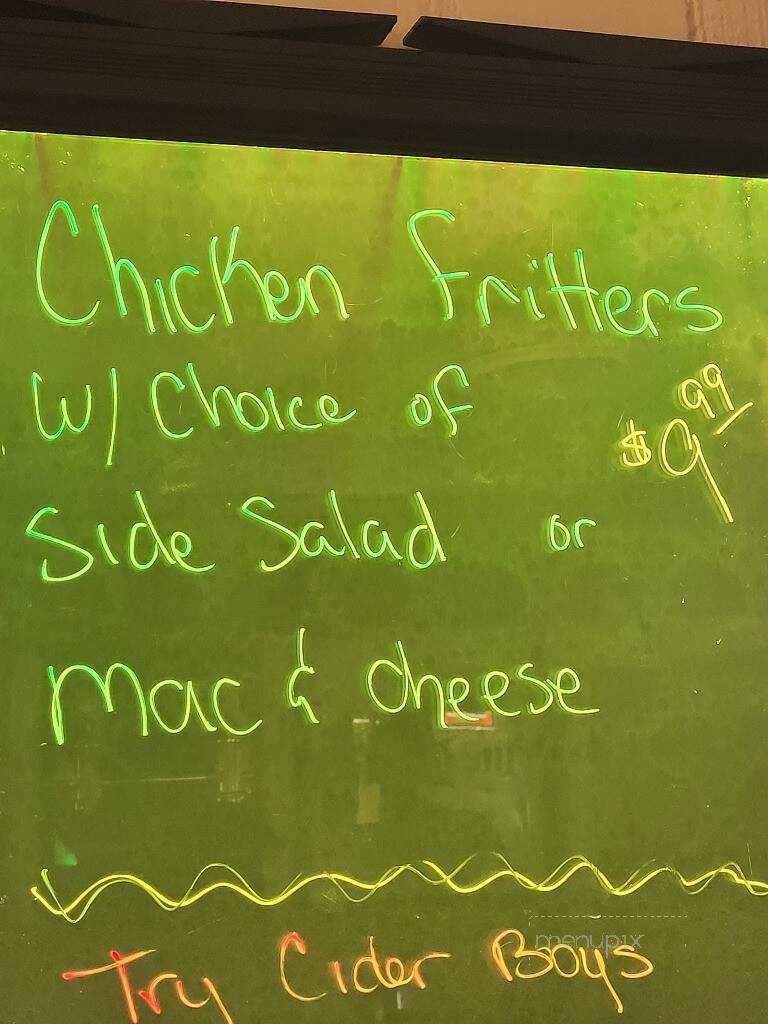 Chicken Fritters
W/ Choice of
$9.99
Side Salad or
Mac & cheese
Try Cider Boys
menupix